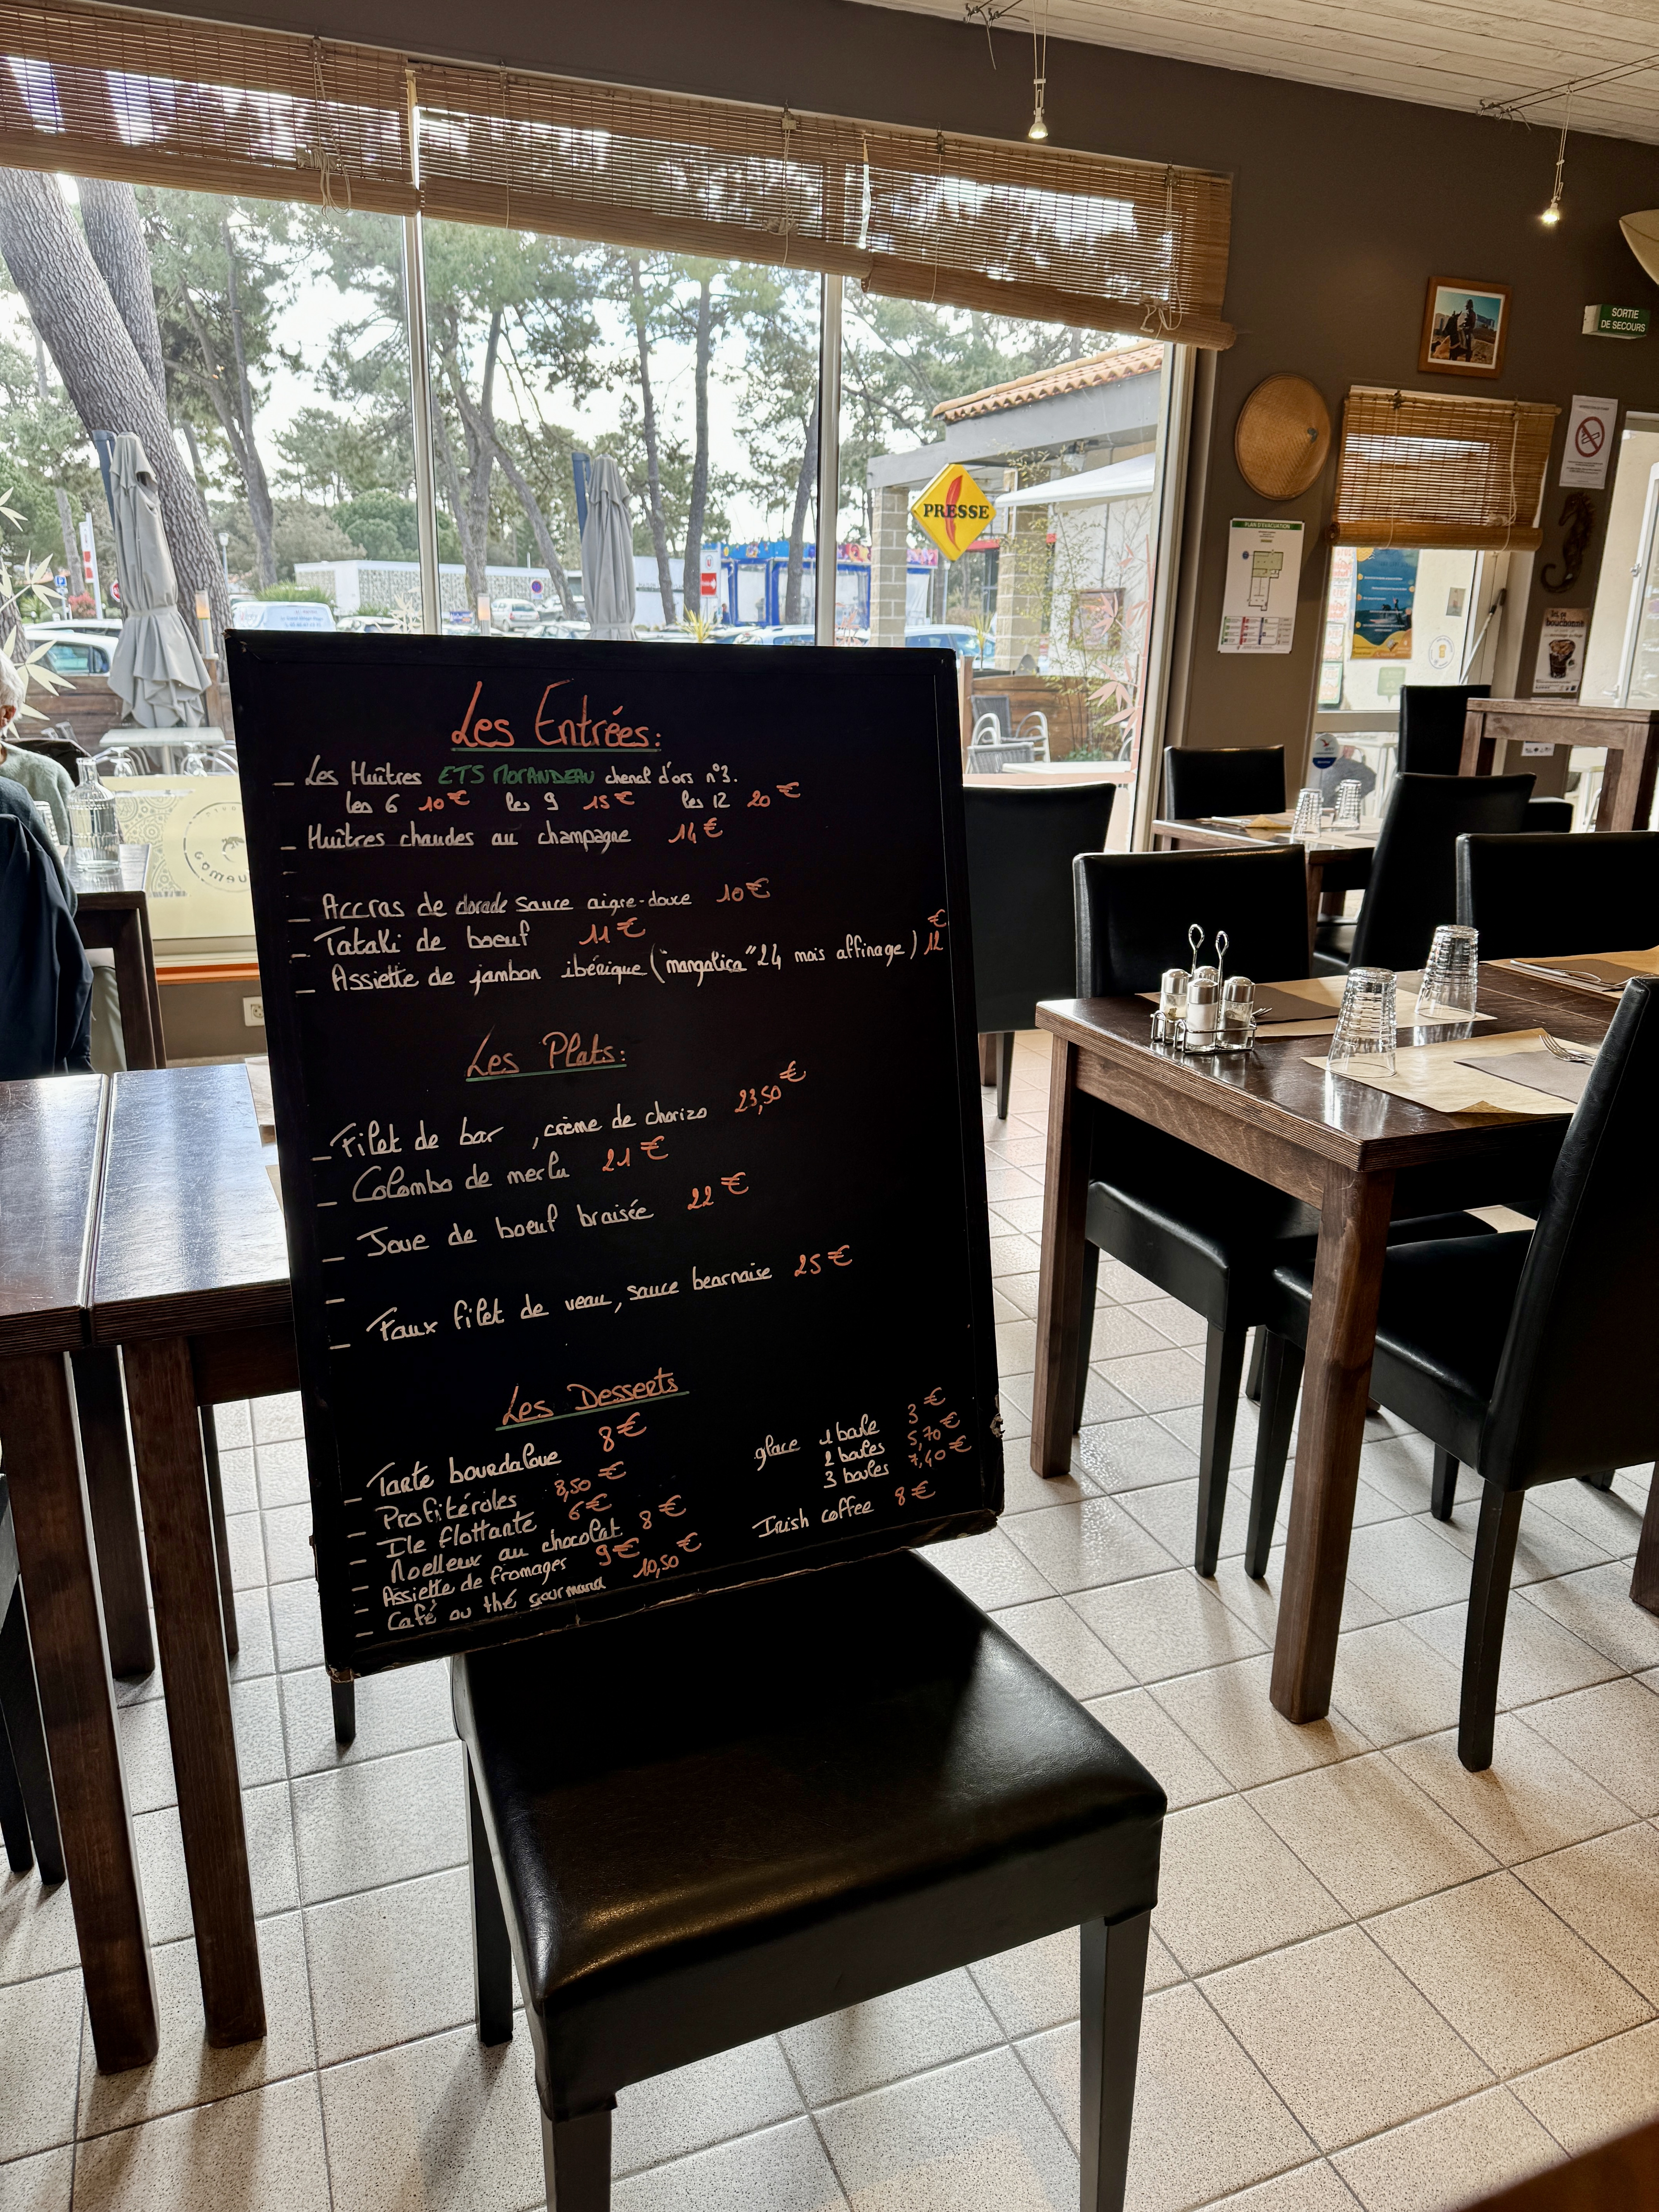 Les Entrées:
_ Les Huîtres ETS MORANDEAU chenal d'ors n°3.
les 6 10€ les 9 15€ les 12 20€
_ Huîtres chaudes au champagne 14€
_
_ Accras de dorade sauce aigre-douce 10€
_ Tataki de boeuf 11€
_ Assiette de jambon ibérique ("mangalica" 24 mois affinage) 12€
Les Plats:
_ Filet de bar , crème de chorizo 23,50€
_ Colombo de merlu 21€
_ Joue de boeuf braisée 22€
_
_ Faux filet de veau, sauce bearnaise 25€
Les Desserts
_ Tarte bourdaloue 8€
_ Profitéroles 8,50€
_ Ile flottante 6€
_ Moelleux au chocolat 8€
_ Assiette de fromages 9€
_ Café ou thé gourmand 10,50€
glace 1 boule 3€
2 boules 5,70€
3 boules 7,40€
Irish coffee 8€
PRESSE
SORTIE
DE SECOURS
PLAN D'EVACUATION